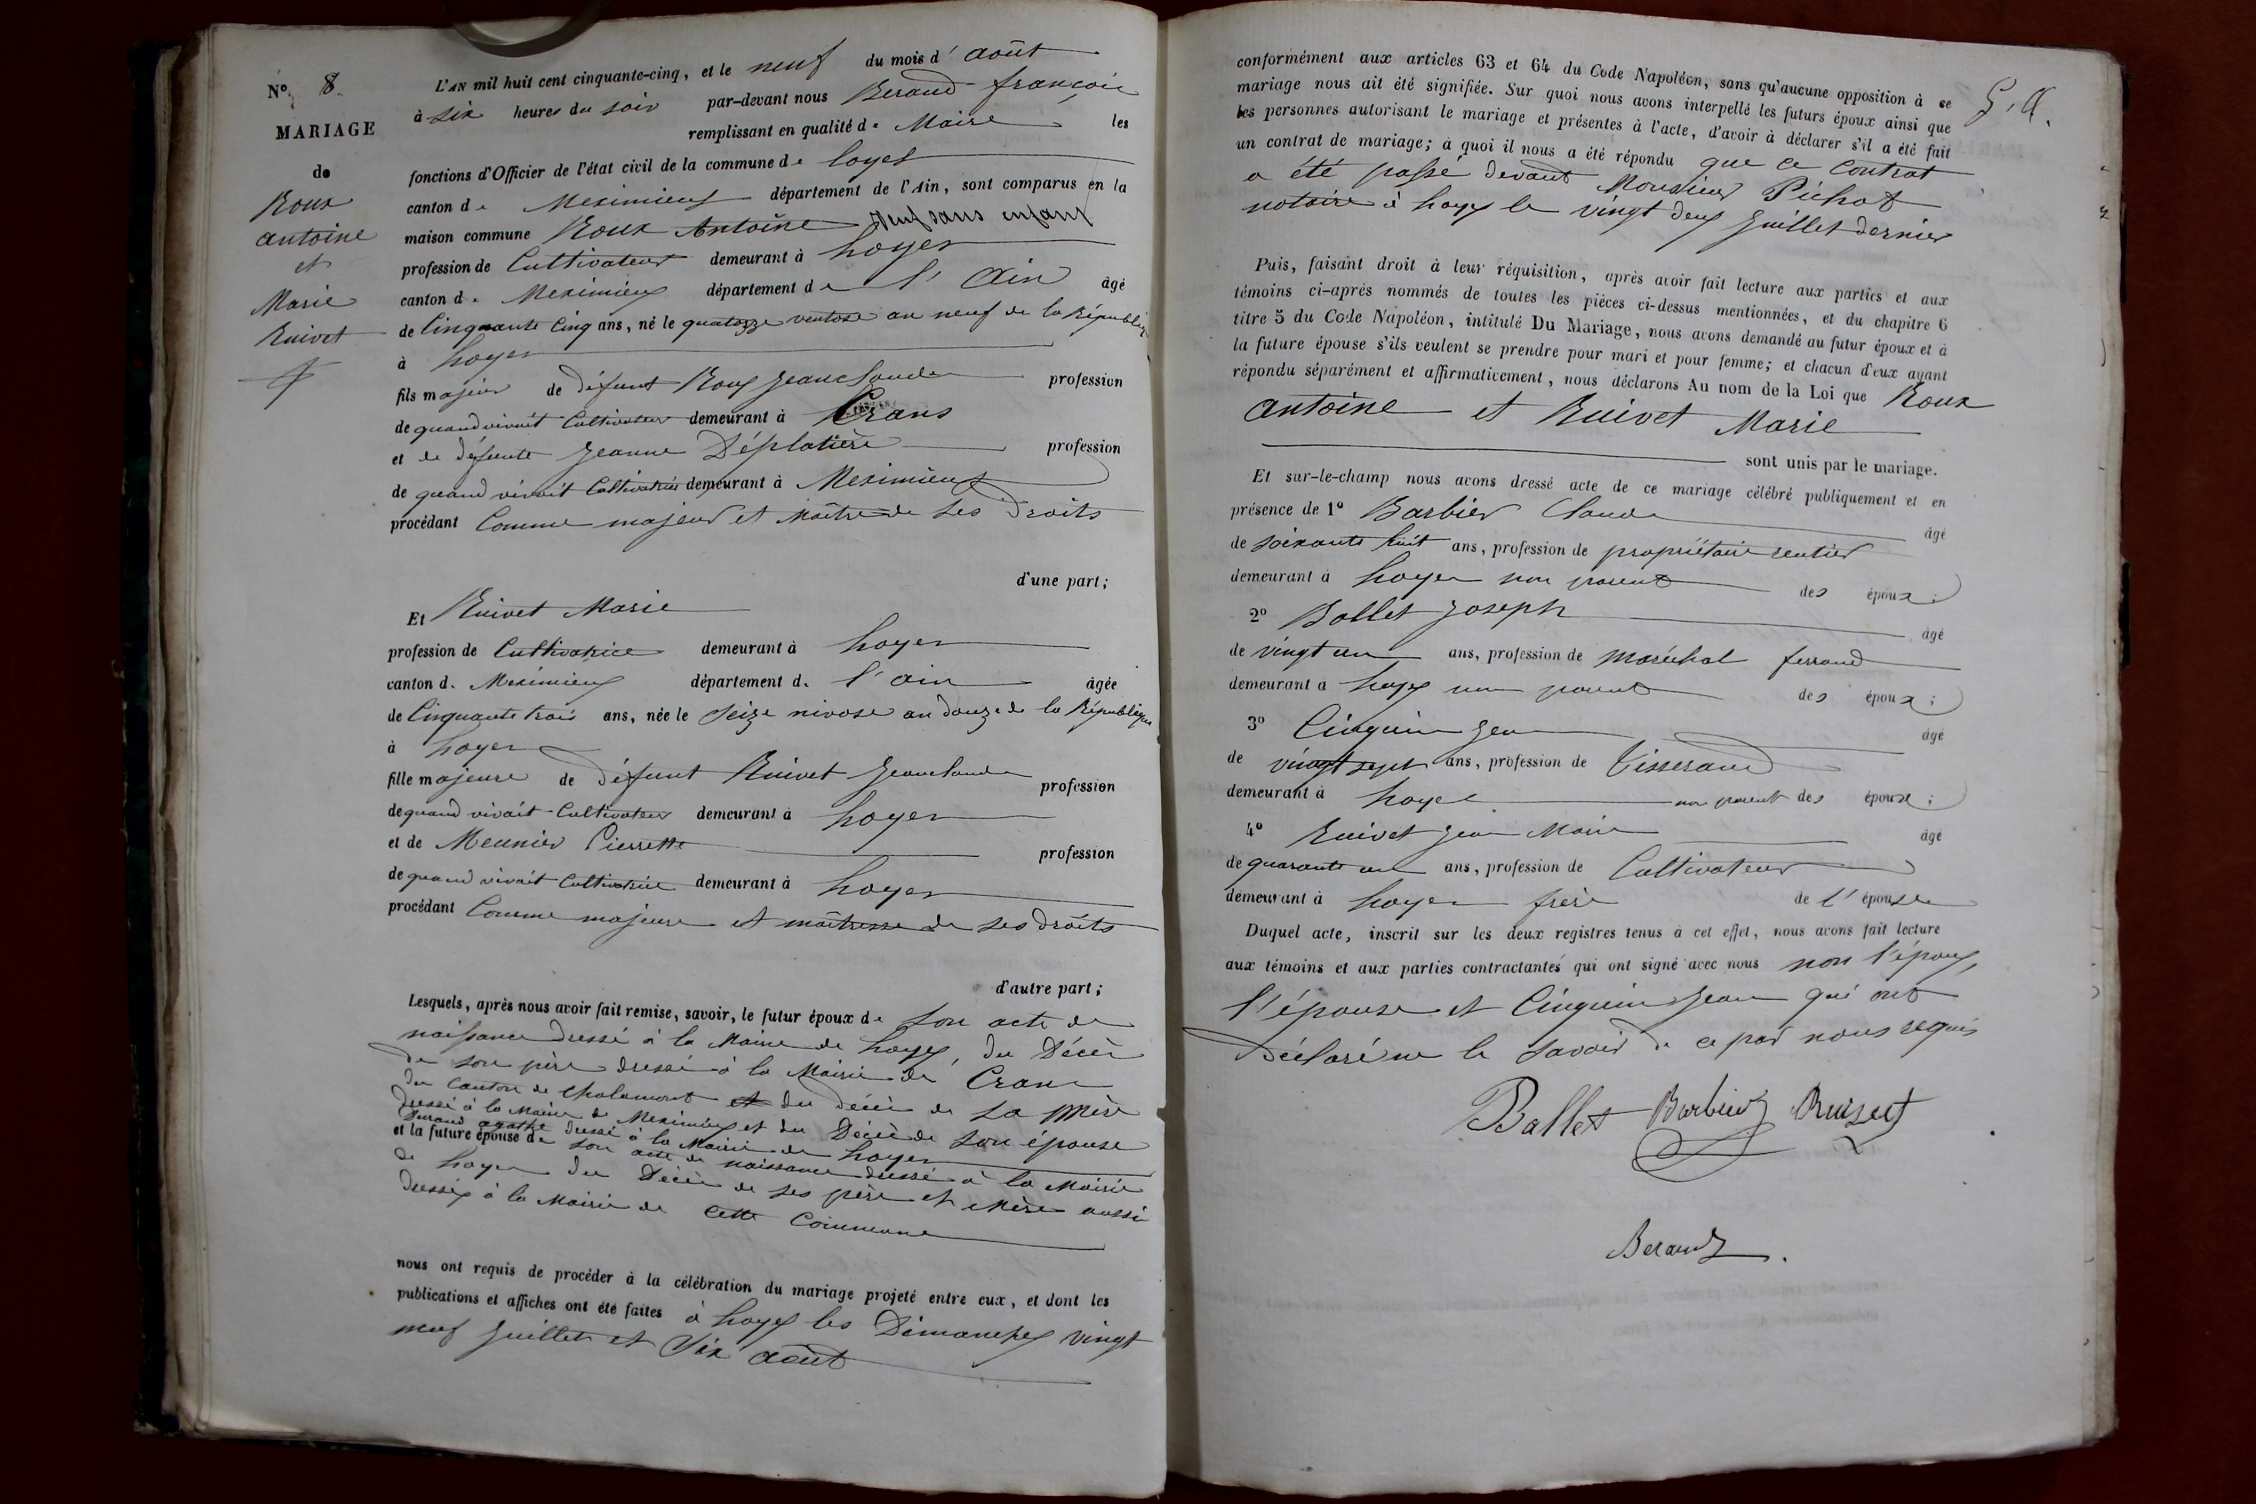 N° 8.
MARIAGE
de
Roux
antoine
et
Marie
Ruivet
L'AN mil huit cent cinquante-cinq, et le neuf du mois d' août
à six heures du soir par-devant nous Beraud françois
remplissant en qualité de Maire les
fonctions d'Officier de l'état civil de la commune de Loyes
canton de Meximieux département de l'Ain, sont comparus en la
maison commune Roux Antoine veuf sans enfant
profession de Cultivateur demeurant à Loyes
canton d. Meximieux département de l' Ain âgé
de Cinquante Cinq ans, né le quatorze ventose an neuf de la République
à Loyes
fils majeur de défunt Roux Jean Claude profession
de quand vivait Cultivateur demeurant à Crans
et de défunte Jeanne Déplatière profession
de quand vivait Cultivatrice demeurant à Meximieux
procédant Comme majeur et Maître de ses droits
d'une part;
Et Ruivet Marie
profession de Cultivatrice demeurant à Loyes
canton d. Meximieux département d. l' ain âgée
de Cinquante trois ans, née le seize nivose an douze de la République
à Loyes
fille majeure de défunt Ruivet Jean claude profession
de quand vivait Cultivateur demeurant à Loyes
et de Meunier Pierrette profession
de quand vivait Cultivatrice demeurant à Loyes
procédant Comme majeure et maîtresse de ses droits
d'autre part;
Lesquels, après nous avoir fait remise, savoir, le futur époux de son acte de
naissance dressé à la Mairie de Loyes, du Décès
de son père dressé à la Mairie de Crans
du canton de Chalamont et du décès de sa mère
dressé à la Mairie de Meximieux et du Décès de son épouse
Durand agathe dressé à la Mairie de Loyes
et la future épouse de son acte de naissance dressé à la Mairie
de Loyes du Décès de ses père et Mère aussi
dressés à la Mairie de cette Commune
nous ont requis de procéder à la célébration du mariage projeté entre eux, et dont les
publications et affiches ont été faites à Loyes les Dimanches vingt
neuf Juillet et Six août
conformément aux articles 63 et 64 du Code Napoléon, sans qu'aucune opposition à ce
mariage nous ait été signifiée. Sur quoi nous avons interpellé les futurs époux ainsi que
les personnes autorisant le mariage et présentes à l'acte, d'avoir à déclarer s'il a été fait
un contrat de mariage; à quoi il nous a été répondu que ce Contrat
a été passé devant Monsieur Pichot
notaire à Loyes le vingt deux Juillet dernier
Puis, faisant droit à leur réquisition, après avoir fait lecture aux parties et aux
témoins ci-après nommés de toutes les pièces ci-dessus mentionnées, et du chapitre 6
titre 5 du Code Napoléon, intitulé Du Mariage, nous avons demandé au futur époux et à
la future épouse s'ils veulent se prendre pour mari et pour femme; et chacun d'eux ayant
répondu séparément et affirmativement, nous déclarons Au nom de la Loi que Roux
antoine et Ruivet Marie
sont unis par le mariage.
Et sur-le-champ nous avons dressé acte de ce mariage célébré publiquement et en
présence de 1° Barbier Claude âgé
de soixante huit ans, profession de propriétaire rentier
demeurant à Loyes non parent des époux;
2° Ballet Joseph âgé
de vingt un ans, profession de maréchal ferrand
demeurant à Loyes non parent des époux;
3° Cinquin Jean âgé
de vingt sept ans, profession de Tisserand
demeurant à Loyes non parent des époux;
4° Ruivet Jean Marie âgé
de quarante un ans, profession de Cultivateur
demeurant à Loyes frère de l' épouse
Duquel acte, inscrit sur les deux registres tenus à cet effet, nous avons fait lecture
aux témoins et aux parties contractantes qui ont signé avec nous non l'époux,
l'épouse et Cinquin Jean qui ont
déclaré ne le savoir de ce par nous requis
Ballet Barbier Ruivet
Beraud